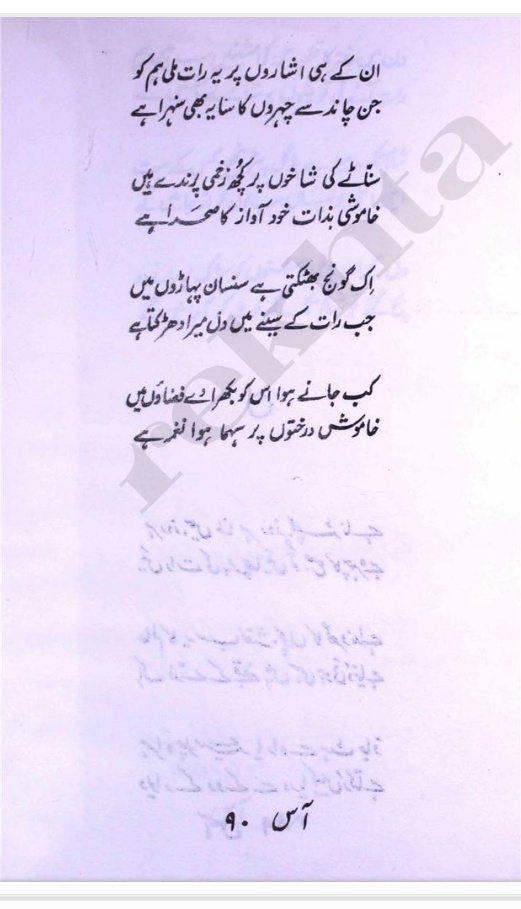 ان کے ہی اشاروں پر یہ رات ملی ہم کو
جن چاند سے چہروں کا سایہ بھی سنہرا ہے
سنّاٹے کی شاخوں پر کچھ زخمی پرندے ہیں
خاموشی بذات خود آواز کا صحرا ہے
اِک گونج بھٹکتی ہے سنسان پہاڑوں میں
جب رات کے سینے میں دل میرا دھڑکتا ہے
کب جانے ہوا اس کو بکھرا دے فضاؤں میں
خاموش درختوں پر سہما ہوا نغمہ ہے
آس ۹۰
rekhta